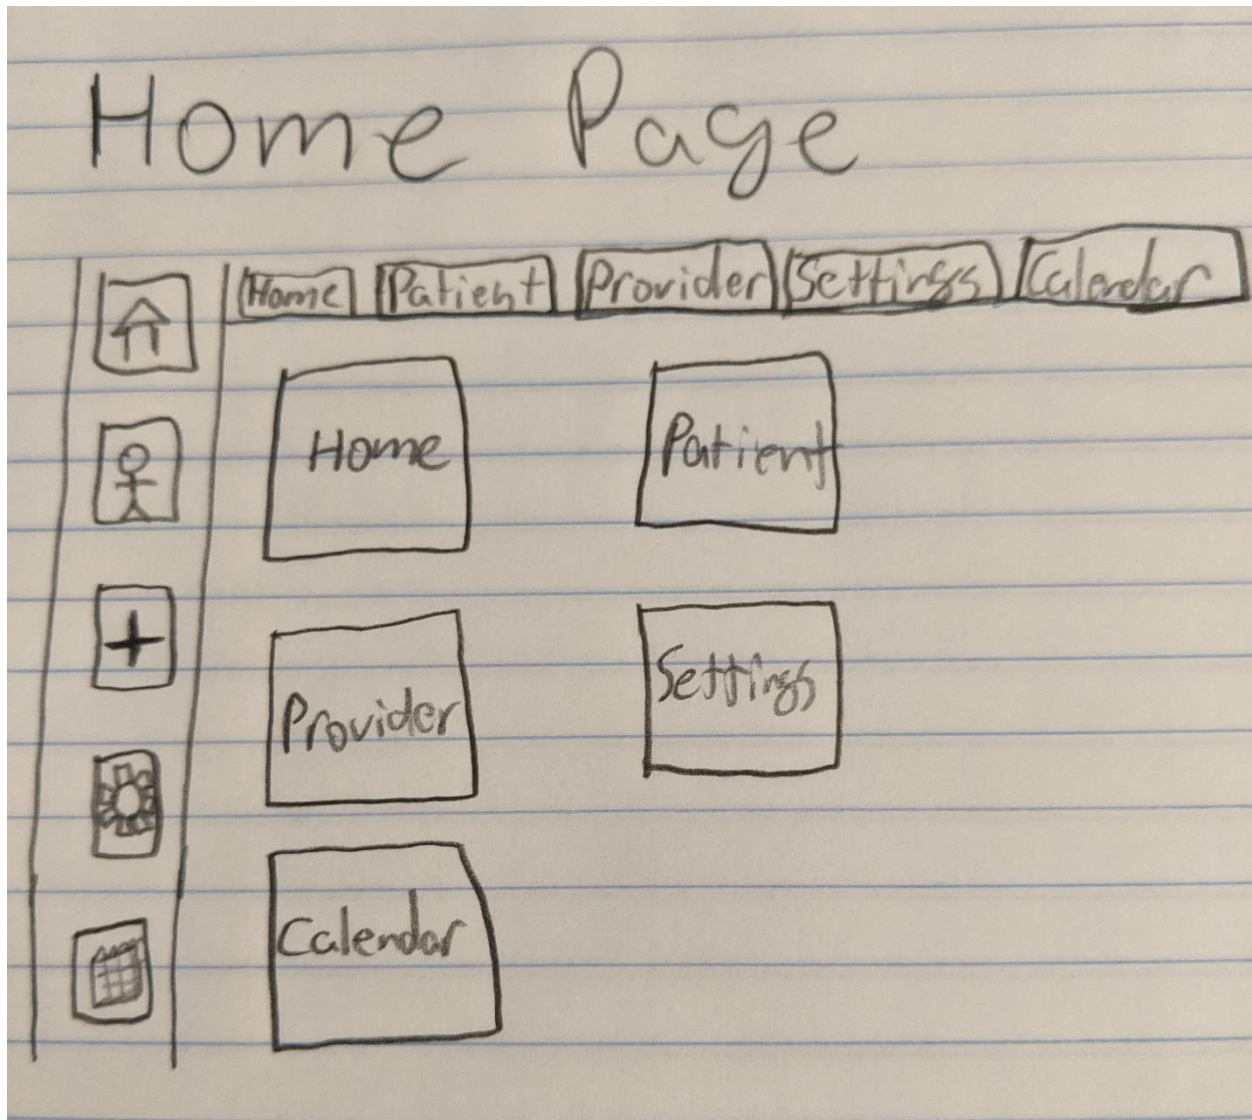 Home Page
Home Patient Provider Settings Calendar
Home Patient
Provider Settings
Calendar